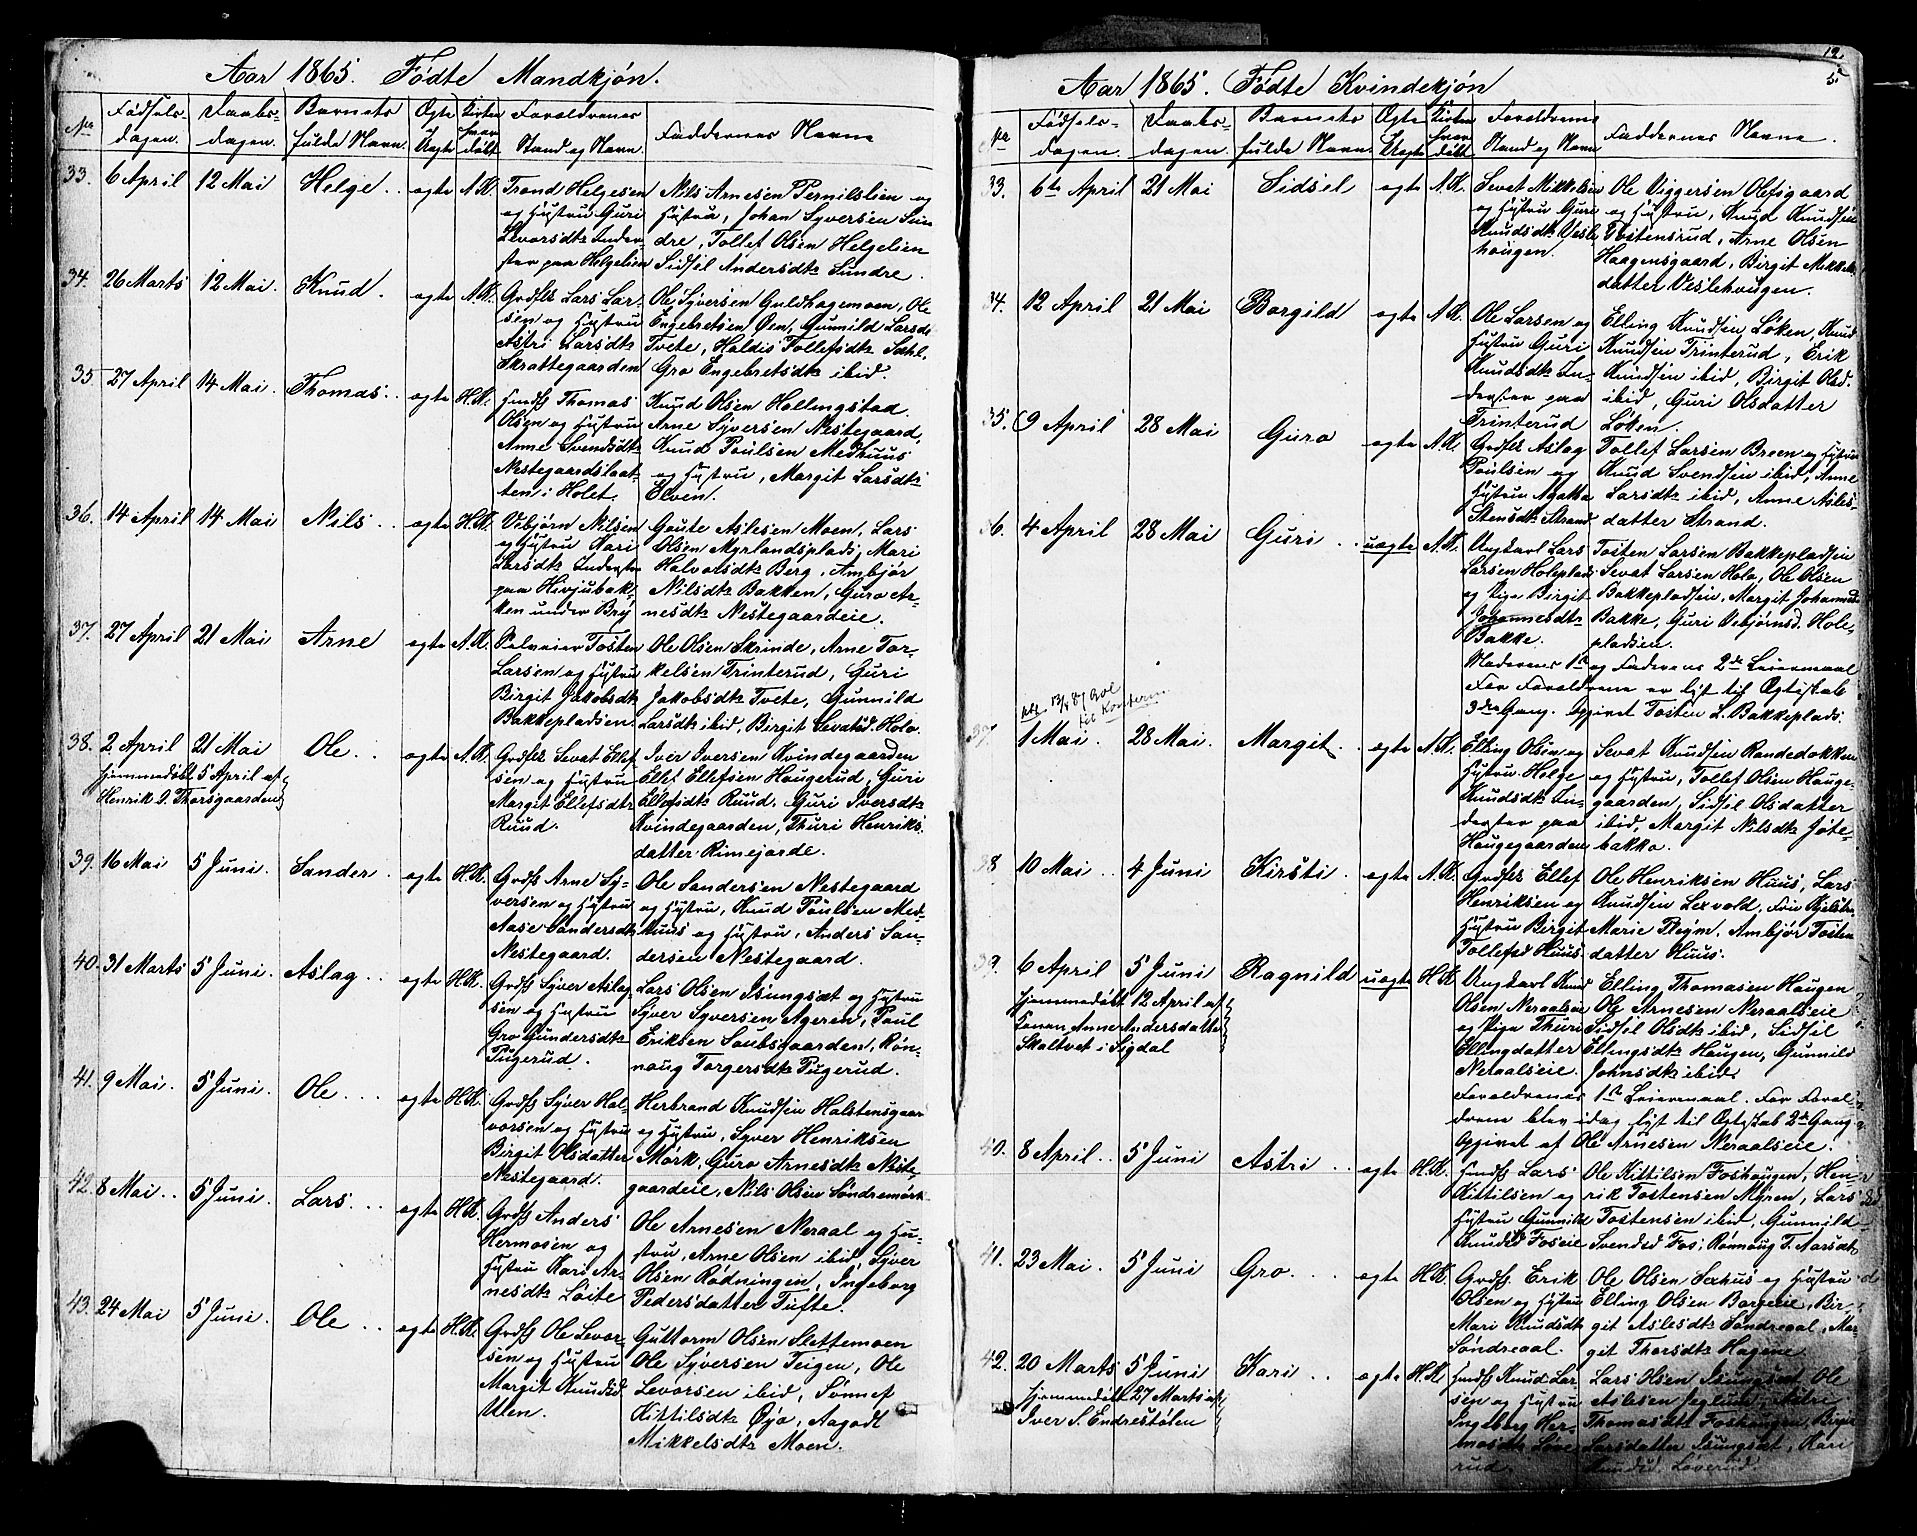 Aar 1865. Fødte Mandkjøn.
No
Fødsels-
dagen.
Daabs-
dagen.
Barnets
fulde Navn.
Ægte
Uægte
Kirken
hvor
døbt
Foraldrenes
Stand og Navn.
Faddernes Navne
33. 6 April 12 Mai Helge.. ægte A.K.
Trond Helgesen
og Hustru Guri
Levorsdtr Inder-
ster paa Helgelien
Nils Arnesen Pernilslien og
Hustru, Johan Syversen Sun
dre, Tollef Olsen Helgelien
Sidsel Andersdtr Sundre.
34. 26 Marts 12 Mai. Knud. ægte A.K.
Grdfr Lars Lar-
sen og Hustru
Astri Larsdtr
Skrattegaarden
Ole Syversen Guldhagemoen, Ole
Engebretsen Øen, Gunnild Larsdr
Tvete, Haldis Tollefsdtr Sæhl.
Gro Engebretsdtr ibid.
35 27 April 14 Mai. Thomas.. ægte H.K.
Husfs Thomas
Olsen og Hustru
Anne Svendsdtr
Nestegaardslaat-
ten i Holet.
Knud Olsen Hollingstad.
Arne Syversen Nestegaard,
Knud Poulsen Medhuus
og Hustru, Margit Larsdtr
Elven.
36. 14 April 14 Mai Nils.. ægte H.K.
Vebjørn Nilsen
og Hustru Kari
Larsdtr Inderster
paa Hivjubak-
ken under Bry
Goute Aslesen Moen, Lars
Olsen Myrlandsplads, Mari
Halvorsdtr Berg, Ambjør
Nilsdtr Bakken, Guro Ar-
nesdtr Nestegaardeie.
37. 27 April 21 Mai Arne ægte A.K.
Selveier Tosten
Larsen og Hustru
Birgit Jakobsdtr
Bakkepladsen
Ole Olsen Skrinde, Arne Tor-
kelsen Trinterud, Guri
Jakobsdtr Tvete, Gunnild
Larsdtr ibid, Birgit Sevatsd. Holo.
38. 2 April 21 Mai Ole.. ægte A.K.
Hjemmedøbt 5 April af
Henrik O. Thorsgaarden
Grdfr Sevat Ellef-
sen og Hustru
Margit Ellefsdtr
Ruud.
Iver Iversen Kvindegaarden
Ellef Ellefsen Haugerud, Guri
Ellefsdtr Ruud. Guri Iversdtr
Kvindegaarden, Thuri Henriks
datter Rimejorde.
39. 16 Mai 5 Juni. Sander. ægte H.K.
Grdfs Arne Sy-
versen og Hustru
Aase Sandersdtr
Nestegaard.
Ole Sandersen Nestegaard
og Hustru, Knud Poulsen Med-
huus og Hustru, Anders San-
dersen Nestegaard.
40. 31 Marts 5 Juni. Aslag.. ægte H.K.
Grdfs Syver Aslag
sen og Hustru
Gro Gundersdtr
Pugerud.
Lars Olsen Isungset og Hustru
Syver Syversen Ageren, Paul
Eriksen Soubsgaarden, Røn-
noug Torgersdtr Pugerud.
41. 9 Mai. 5 Juni. Ole... ægte H.K.
Grdfs Syver Hal-
vorsen og Hustru
Birgit Olsdatter
Nestegaard.
Herbrand Knudsen Halstensgaar
og Hustru, Syver Henriksen
Mørk, Guro Arnesdtr Neste-
gaardeie, Nils Olsen Søndremørk
42. 8 Mai.. 5 Juni. Lars... ægte H.K.
Grdfs Anders
Hermosen og
Hustru Kari Ar-
nesdtr Loite
Ole Arnesen Neraal og Hu-
stru, Arne Olsen ibid, Syver
Olsen Rødningen, Ingeborg
Pedersdatter Tufte.
43. 24 Mai 5 Juni. Ole.. ægte H.K.
Grdfs Ole Levor-
sen og Hustru
Margit Knudsd
Ulen.
Guttorm Olsen Slettemoen
Ole Syversen Teigen, Ole
Levorsen ibid, Sønnef
Kittilsdtr Øyo, Aagodt
Mikkelsdtr Moen.
12.
5.
Aar 1865. Fødte Kvindekjøn
No
Fødsels-
dagen.
Daabs-
dagen.
Barnets
fulde Navn.
Ægte
Uægte
Kirken
hvor
døbt
Foraldrene
Stand og Navn
Faddernes Navne.
33. 6te April 21 Mai Sidsel ægte A.K.
Sevat Mikkelsen
og Hustru Guri
Knudsdtr Vesle
hougen.
Ole Viggersen Olefsgaard
og Hustru, Knud Knudsen
Tostensrud, Arne Olsen
Haagensgaard, Birgit Mikkels
datter Veslehougen.
34. 12 April 21 Mai Borgild ægte A.K.
Ole Larsen og
Hustru Guri
Knudsdtr In-
derster paa
Trinterud
Elling Knudsen Løken, Knud
Knudsen Trinterud, Erik
Knudsen ibid, Birgit Olsd.
ibid, Guri Olsdatter
Løken.
35. 9 April 28 Mai Guro ægte A.K.
Grdfr Aslag
Poulsen og
Hustru Agatha
Stensdtr Strand
Tollef Larsen Breen og Hustru
Knud Svendsen ibid, Anne
Larsdtr ibid, Anne Asles-
datter Strand.
36. 4 April 28 Mai Guri.. uægte A.K.
Ungkarl Lars
Larsen Holeplads
og Pige Birgit
Johannesdtr
Bakke.
Tosten Larsen Bakkepladsen
Sevat Larsen Holo, Ole Olsen
Bakkepladsen, Margit Johannesdr
Bakke, Guri Vebjørnsd. Hole-
pladsen.
Moderens 1ste og Faderens 2det Leiermaal
For Foraldrene er lyst til Ægteskab
3die Gang. Opgivet Tosten L. Bakkeplads.
13/8 87
til Konfirm
37. 1 Mai. 28 Mai. Margit. ægte A.K.
Elling Olsen og
Hustru Helge
Knudsdtr In-
derster paa
Haugegaarden
Sevat Knudsen Randedokken
og Hustru, Tollef Olsen Hauge-
gaarden, Sidsel Olsdatter
ibid, Margit Nilsdtr Jøte-
bakko.
38 10 Mai.. 4 Juni Kirsti. ægte A.K.
Grdfr Ellef
Henriksen og
Hustru Birgit
Tollefsd Huus
Ole Henriksen Huus, Lars
Knudsen Lexvold,
Marie Fleym, Ambjør Tosten
datter Huus.
39. 6 April 5 Juni Ragnild uægte H.K
Hjemmedøbt 12 April af
Konen Anne Andersdatter
Skaltvet i Sigdal
Ungkarl Knud
Olsen Neraalseie
og Pige Thuri
Ellingdatter
Neraalseie.
Elling Thomasen Haugen
Ole Arnesen Neraalseie
Sidsel Olsdtr ibid, Sidsel
Ellingsdtr Haugen, Gunnild
Johnsdtr ibid.
Foraldrenes 1ste Leiermaal. For Foral-
drene blev idag lyst til Ægteskab 2den Gang
Opgivet af Ole Arnesen Neraalseie.
40. 8 April.. 5 Juni Astri.. ægte H.K.
Husfs Lars
Kittilsen og
Hustru Gunnild
Knudsd Foseie
Ole Kittilsen Foshaugen, Hen-
rik Tostensen Myren, Lars
Tostensen ibid, Gunnild
Svendsd Fos, Rønnoug T. Aarsdtr
41. 23 Mai. 5 Juni Gro... ægte H.K.
Grdfs Erik
Olsen og Hustru
Mari Knudsdtr
Søndreaal.
Ole Olsen Sæhus og Hustru
Elling Olsen Borgeeie, Bir-
git Aslesdtr Søndreaal, Mar
git Thorsdtr Hagene.
42. 20 Marts 5 Juni Kari.. ægte H.K.
Hjemmedøbt 27 Marts af
Iver S. Endrestølen
Husfs Knud Lar
sen og Hustru
Ingeborg Her-
mosdtr Løve-
rud.
Lars Olsen Isungset, Ole
Aslesen
Thomasdtr Foshaugen, Birgit
Larsdatter Isungset, Kari
Knudsd. Løverud.